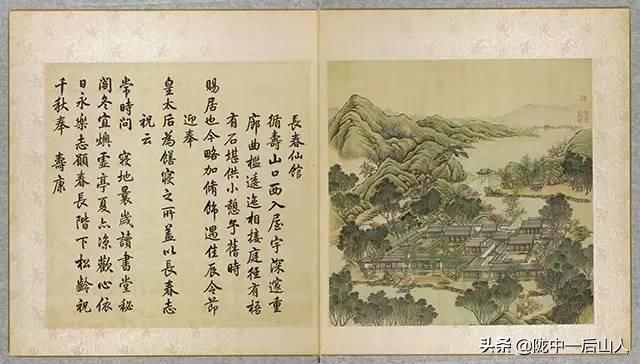 長春仙館
循壽山口西入屋宇深邃重
廊曲檻逶迤相接庭徑有梧
有石堪供小憩予舊時
賜居也今略加脩飾遇佳辰令節
迎奉
皇太后為膳寢之所蓋以長春志
祝云
常時問 寢地曩歲讀書堂秘
閣冬宜燠靈亭夏亦涼歡心依
日永樂志願春長階下松齡祝
千秋奉 壽康
头条 @陇中一后山人